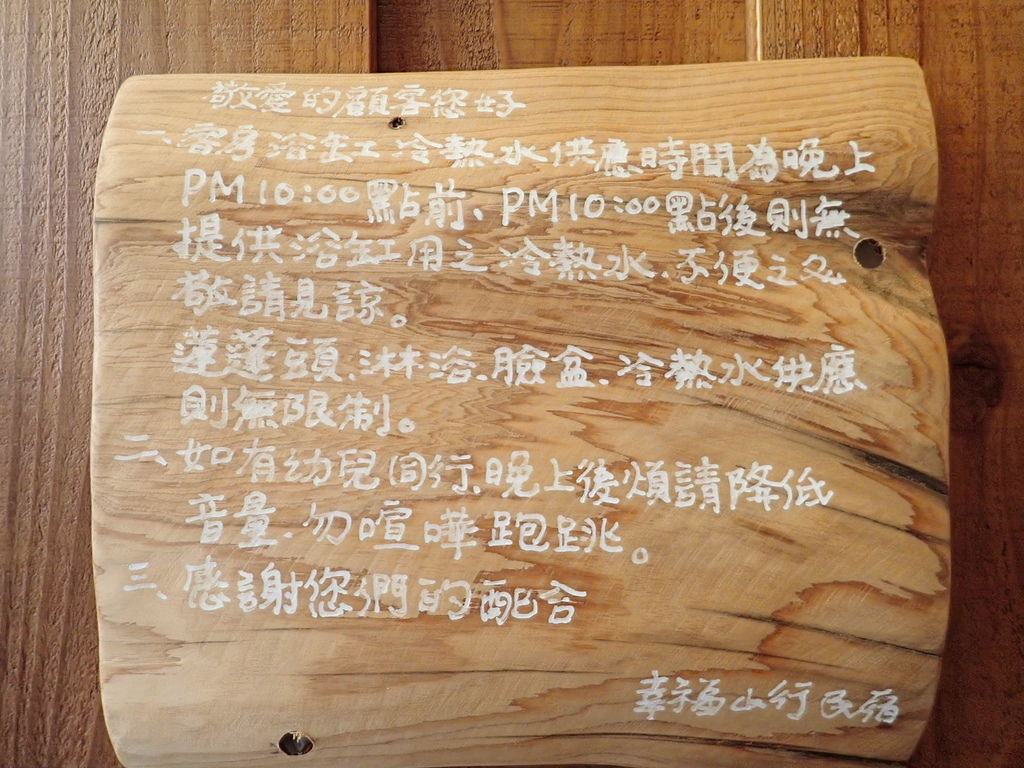 敬愛的顧客您好
一、客房浴缸冷熱水供應時間為晚上
PM10:00點前、PM10:00點後則無
提供浴缸用之冷熱水、不便之处
敬請見諒。
蓮蓬頭、淋浴、臉盆、冷熱水供應
則無限制。
二、如有幼兒同行、晚上後煩請降低
音量、勿喧嘩跑跳。
三、感謝您們的配合
幸福山行民宿